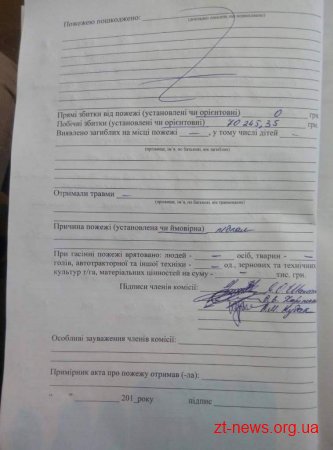 Пожежою пошкоджено:
Прямі збитки від пожежі (установлені чи орієнтовні) 0 грн
Побічні збитки (установлені чи орієнтовні) 20 245,35 грн
Виявлено загиблих на місці пожежі —, у тому числі дітей —
(прізвище, ім'я, по батькові, вік загиблих)
Отримали травми —
(прізвище, ім'я, по батькові, вік травмованих)
Причина пожежі (установлена чи ймовірна) підпал
При гасінні пожежі врятовано: людей - — осіб, тварин - —
голів, автотракторної та іншої техніки - — од., зернових та технічних
культур т/га, матеріальних цінностей на суму - — тис. грн.
Підписи членів комісії:
Особливі зауваження членів комісії:
Примірник акта про пожежу отримав (-ла):
" " 201_року підпис
zt-news.org.ua